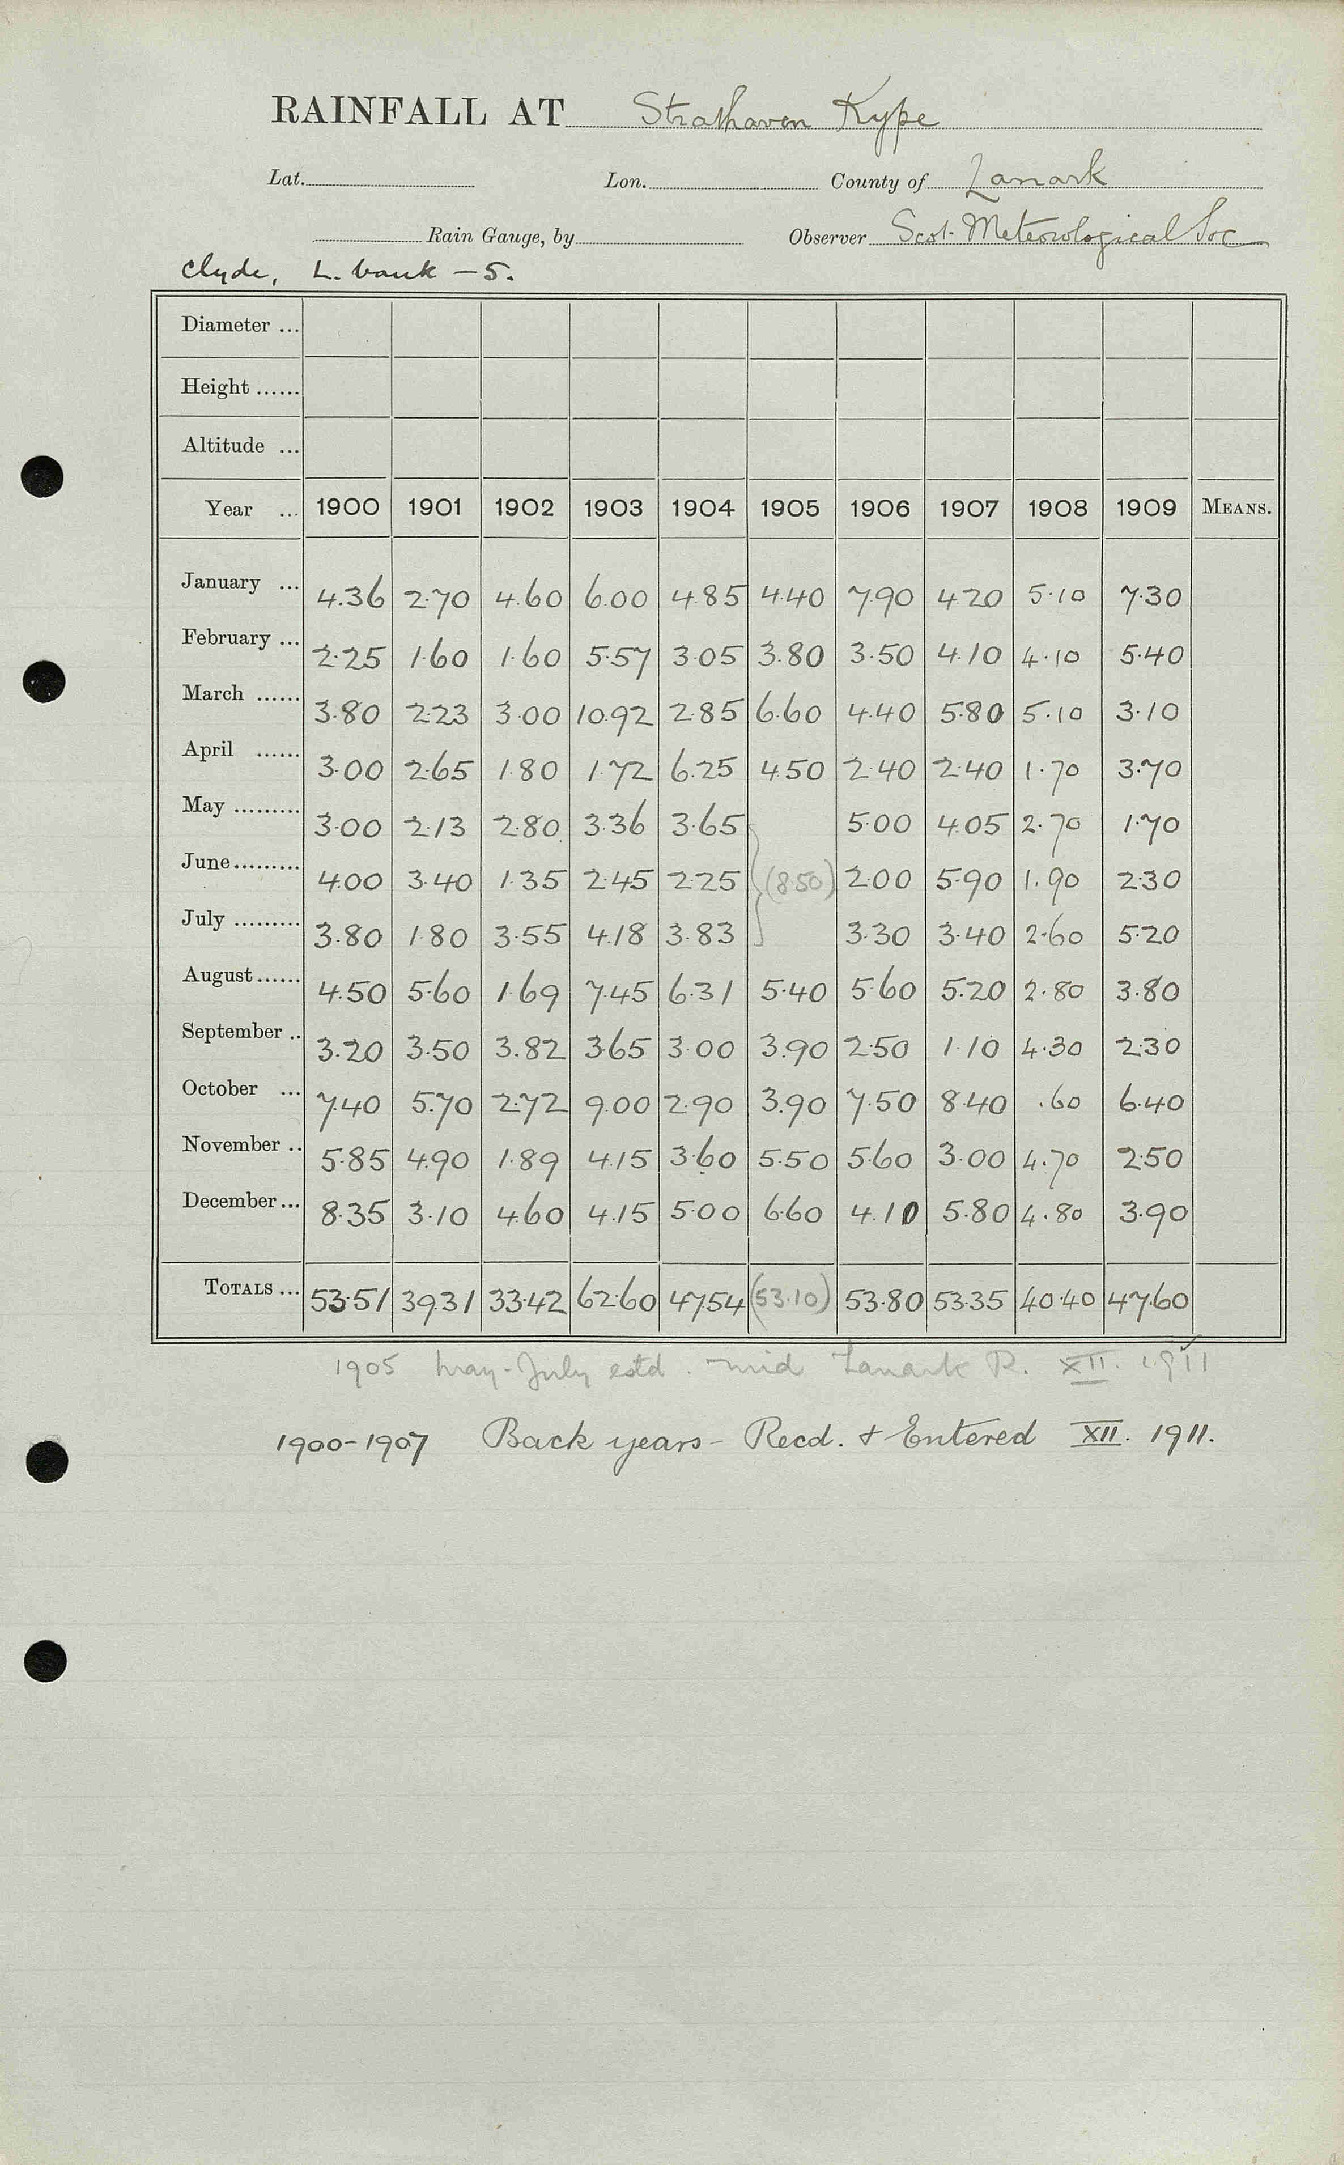 RAINFALL AT Strathaven Kype
Lat. Lon. County of Lanark
Rain Gauge, by Observer Scot. Meteorological Soc
Clyde, L. bank – 5.
Diameter ...
Height ......
Altitude ...
Year ... 1900 1901 1902 1903 1904 1905 1906 1907 1908 1909 MEANS.
January ... 4.36 2.70 4.60 6.00 4.85 4.40 7.90 4.20 5.10 7.30
February ... 2.25 1.60 1.60 5.57 3.05 3.80 3.50 4.10 4.10 5.40
March ...... 3.80 2.23 3.00 10.92 2.85 6.60 4.40 5.80 5.10 3.10
April ...... 3.00 2.65 1.80 1.72 6.25 4.50 2.40 2.40 1.70 3.70
May ......... 3.00 2.13 2.80 3.36 3.65 5.00 4.05 2.70 1.70
June ......... 4.00 3.40 1.35 2.45 2.25 (8.50) 2.00 5.90 1.90 2.30
July ......... 3.80 1.80 3.55 4.18 3.83 3.30 3.40 2.60 5.20
August ...... 4.50 5.60 1.69 7.45 6.31 5.40 5.60 5.20 2.80 3.80
September .. 3.20 3.50 3.82 3.65 3.00 3.90 2.50 1.10 4.30 2.30
October ... 7.40 5.70 2.72 9.00 2.90 3.90 7.50 8.40 .60 6.40
November .. 5.85 4.90 1.89 4.15 3.60 5.50 5.60 3.00 4.70 2.50
December ... 8.35 3.10 4.60 4.15 5.00 6.60 4.10 5.80 4.80 3.90
TOTALS ... 53.51 39.31 33.42 62.60 47.54 (53.10) 53.80 53.35 40.40 47.60
1905 May-July estd. mid Lanark R. XII. 1911
1900-1907 Back years - Recd. & Entered XII. 1911.